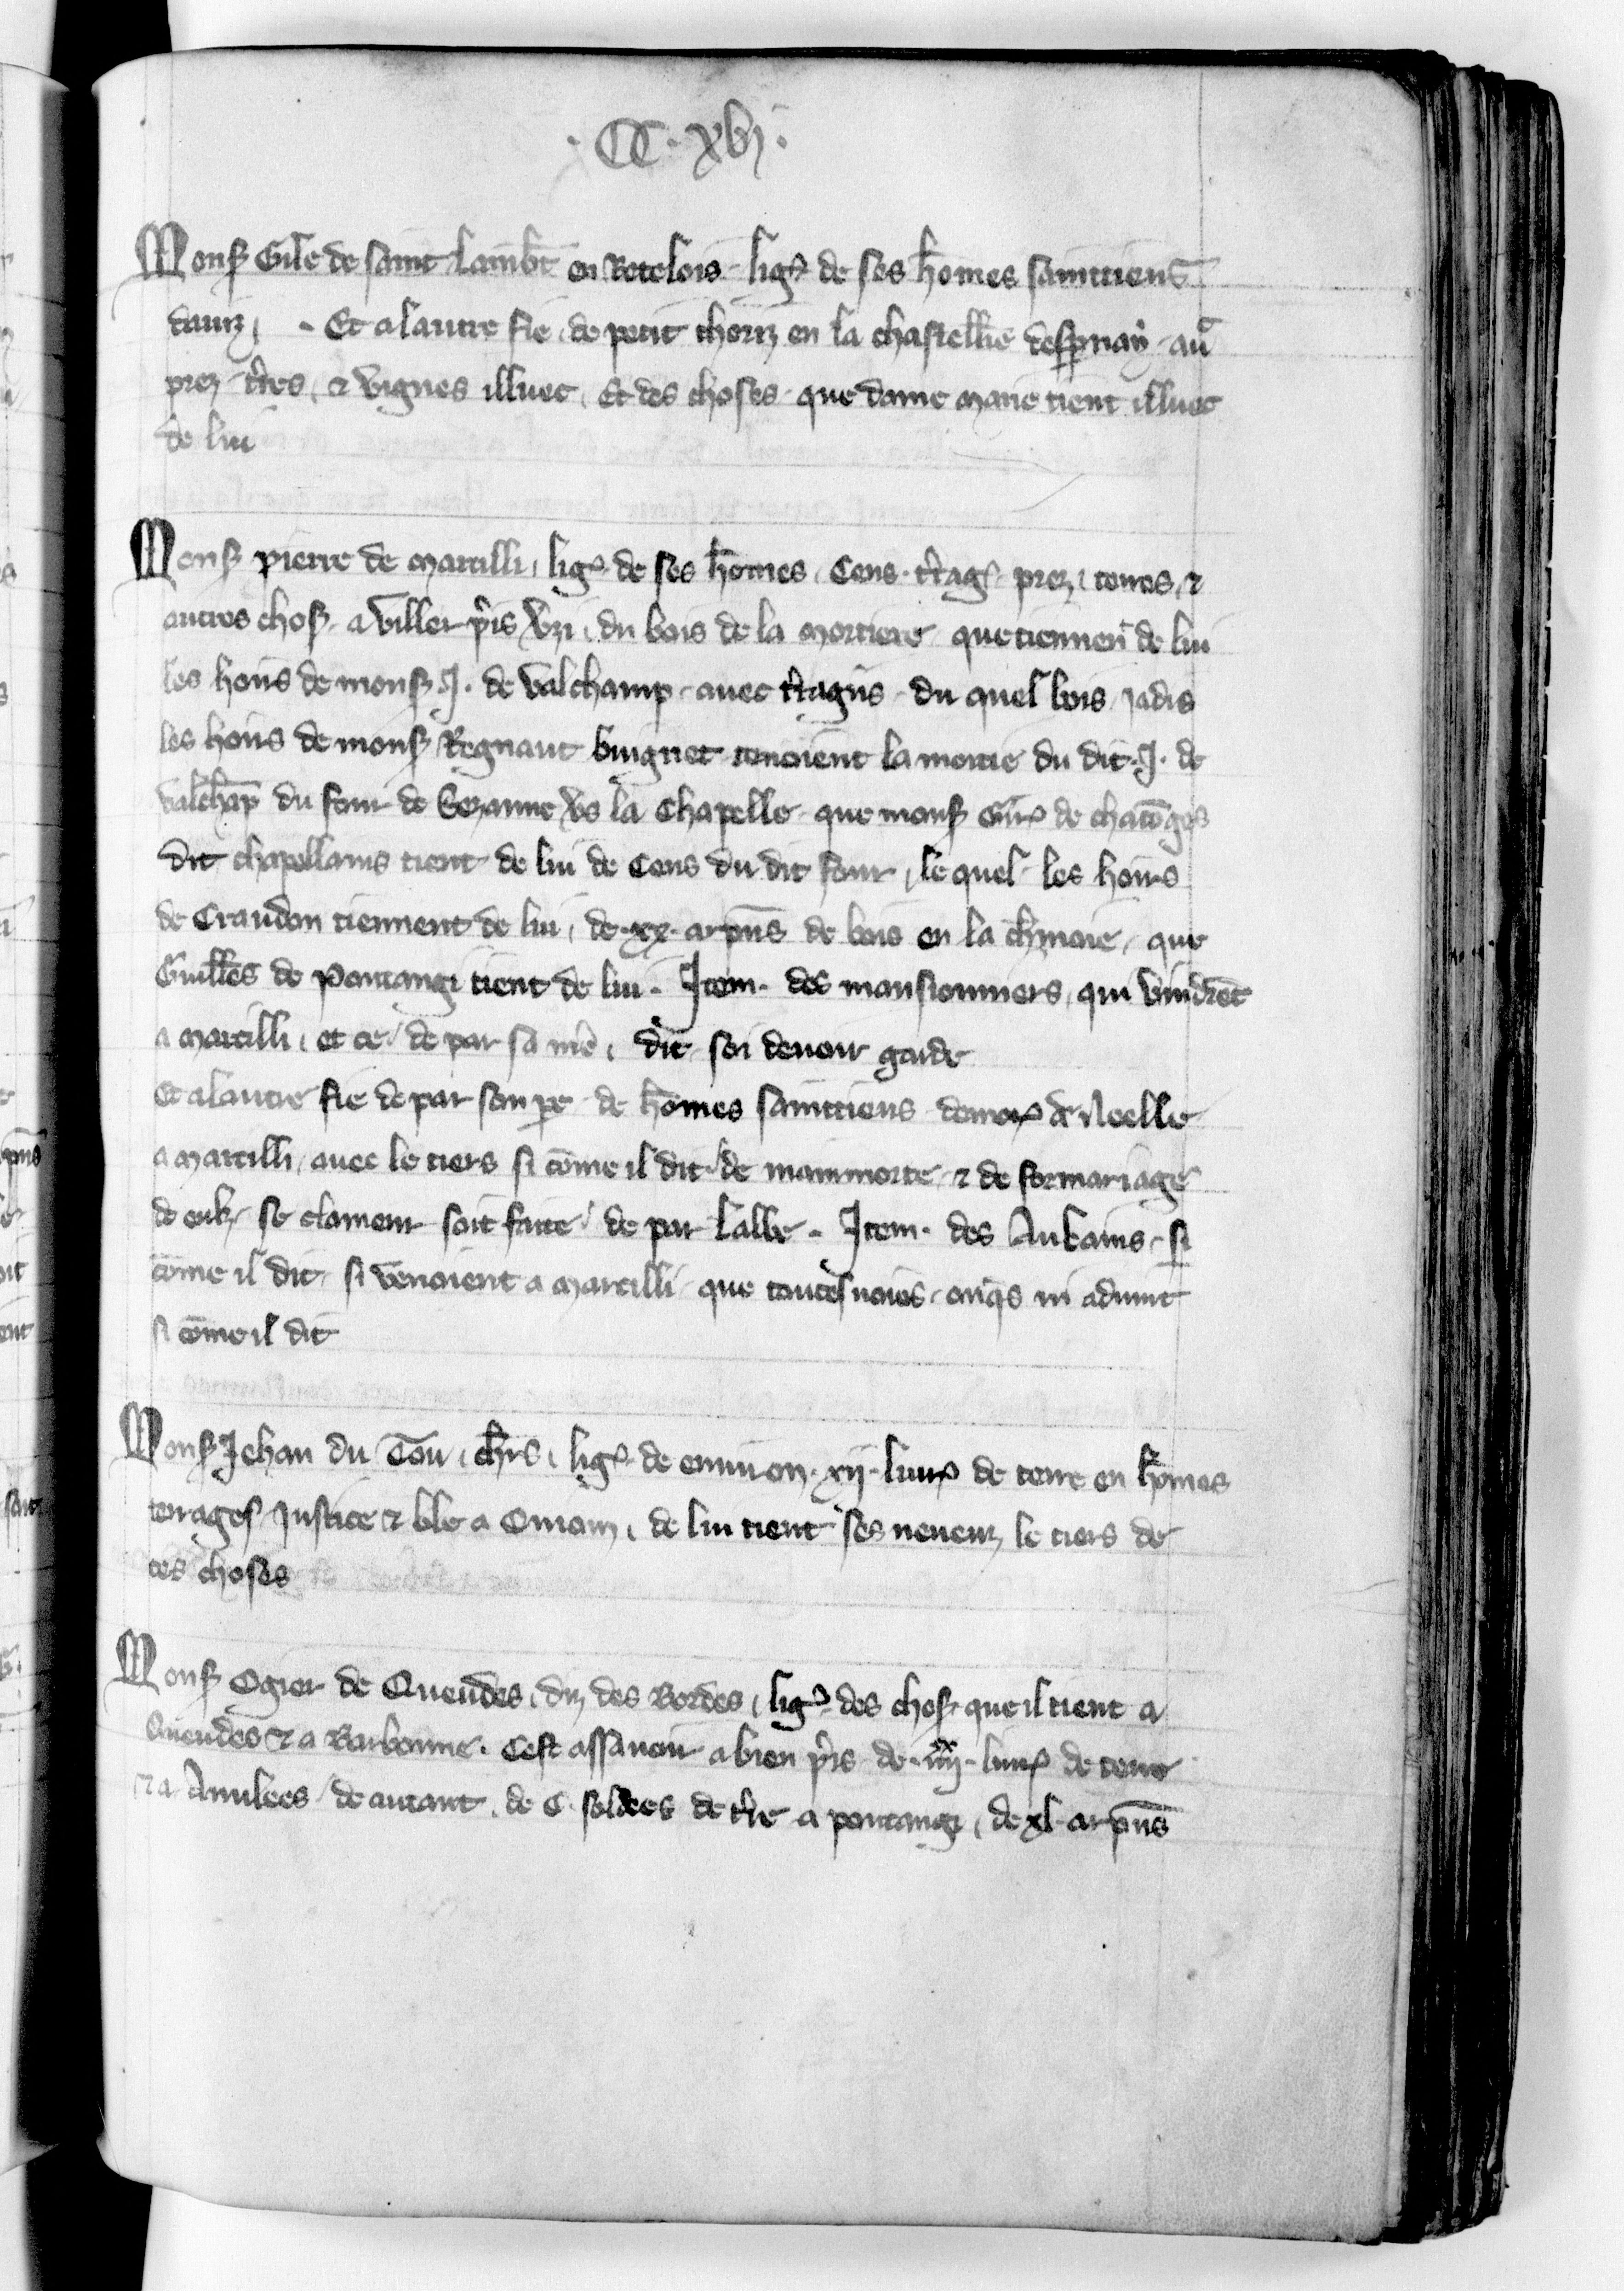 . CC . xvj .
Monsʳ Gile de saint Lamb̄t en Retelois . ligeˢ de ses hōmes sainttiens
dauiz , . Et a lautre fie , de petit choriz en la chastell̄ie desp̱nay . au
prez . t̃res , ⁊ vignes illuec , Et des choses . que dame marie tient illuec
de lui
Monsʳ pierre de marcilli , ligˢ . de ses hōmes , Cens . t̃ragˢ . prez , terres , ⁊
autres chosˢ . a viller p̃s , du bois de la mortiere . que tiennent de lui
les hoirs de monsʳ . J . de valchamp . auec t̃rages . du quel bois , jadis
les hoirs de monsʳ Regnaut buignet tenoient la moitie du dit . J . de
valchāp du four de Sezanne v̄s la Chapelle . que monsʳ de
dit chapellains tient de lui de Cens du dit four , le quel . les hoirs
de Craudon tiennent de lui , de . xx . arpens de bois en la , que
Guill̄es de Pontangi tient de lui . Item . des mansionniers , qui vindrēt
a marcilli , et ce , de par sa m̃e , dit . soi deuoir garde
Et a lautre fie de par son p̱e . de hōmes sainttiens . demorˢ a Neelle
a marcilli , auec le tiers si cōme il dit . de mainmorte . ⁊ de formariage
de eulz , se clameur soit faite , de par labbe . Item . des Aubains . si
cōme il dit , si venoient a marcilli . que toutesuoies . onq̃s ni aduint
si cōme il dit
Monsʳ Jehan du Tou , ch̄rs , ligˢ . de enuiron . xij . liurˢ de terre en hōmes
terragesˢ Justice ⁊ ble a , de lui tient ses neueuz le tiers de
ces choses
Monsʳ Ogier de Queudes , diz des Bordes , ligˢ . des chosˢ que il tient a
Queudes ⁊ a Barbonne . Cest assauoir a bien p̃s . de . iiijˣˣ . liurˢ de terre
⁊ a Anulees , de autant , de C . soldees de t̃re a pontangi , de xl . arpens